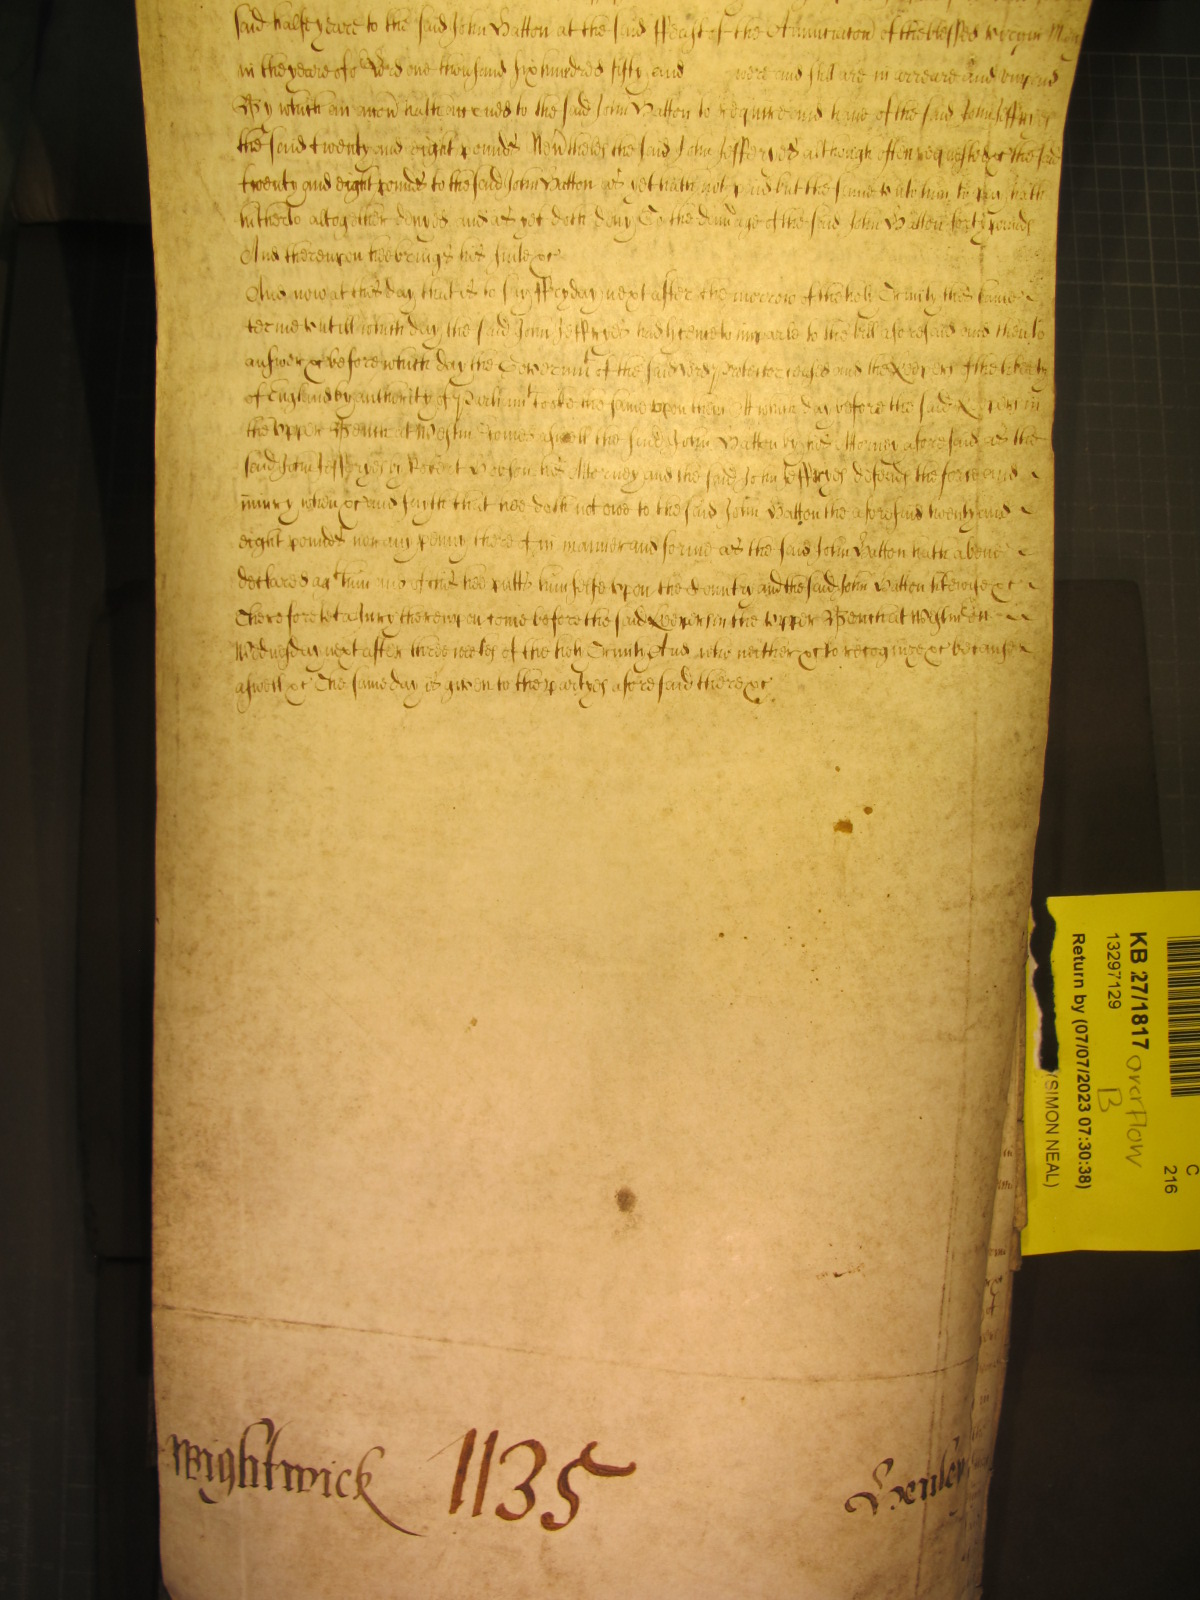 said halfe yeare to the said John Batton at the said ffeast of the Annunciacon of the blessed Virgin Mary
in the yeare of o Lord one thousand six hundred fifty and were and still are in arreare and unpaid
By which an accon hath accrued to the said John Batton to require and have of the said John Jeffryes
the said twenty and eight pounds Nevthelesse the said John Jefferyes although often requested &c the said
twenty and eight pounds to the said John Batton as yet hath not paid but the same unto him to pay hath
hitherto altogether denyed and as yet doth deny To the damage of the said John Batton forty pounds
And thereupon hee brings his suite &c
And now at this day that is to say ffryday next after the morrow of the holy Trinity this same
terme untill which day the said John Jeffryes had licence to imparle to the bill aforesaid and then to
answer &c before which day the Governmt of the said Lord Protector ceased and the Keepers of the liberty
of England by authority of Parliamt tooke the same upon them Att which day before the said Keepers in
the upper Bench at Westm Comes aswell the said John Batton by his Attorney aforesaid as the
said John Jefferyes by Robert his Attorney and the said John Jeffryes defends the force and
iniury when &c and saith that hee doth not owe to the said John Batton the aforesaid twenty and
eight pounds nor any penny thereof in manner and forme as the said John Batton hath above
declared agt him and of this hee putts himselfe upon the Country and the said John Batton likewise &c
Therefore let a Jury thereupon come before the said Keepers in the upper Bench at Westminster on
Wednesday next after three weekes of the holy Trinity And who neither &c to recognize &c because
aswell &c The same day is given to the partyes aforesaid there &c
Wightwick 1135 Henley
KB 27/1817 overflow
B
13297129
Return by (07/07/2023 07:30:38)
(SIMON NEAL)
C
216